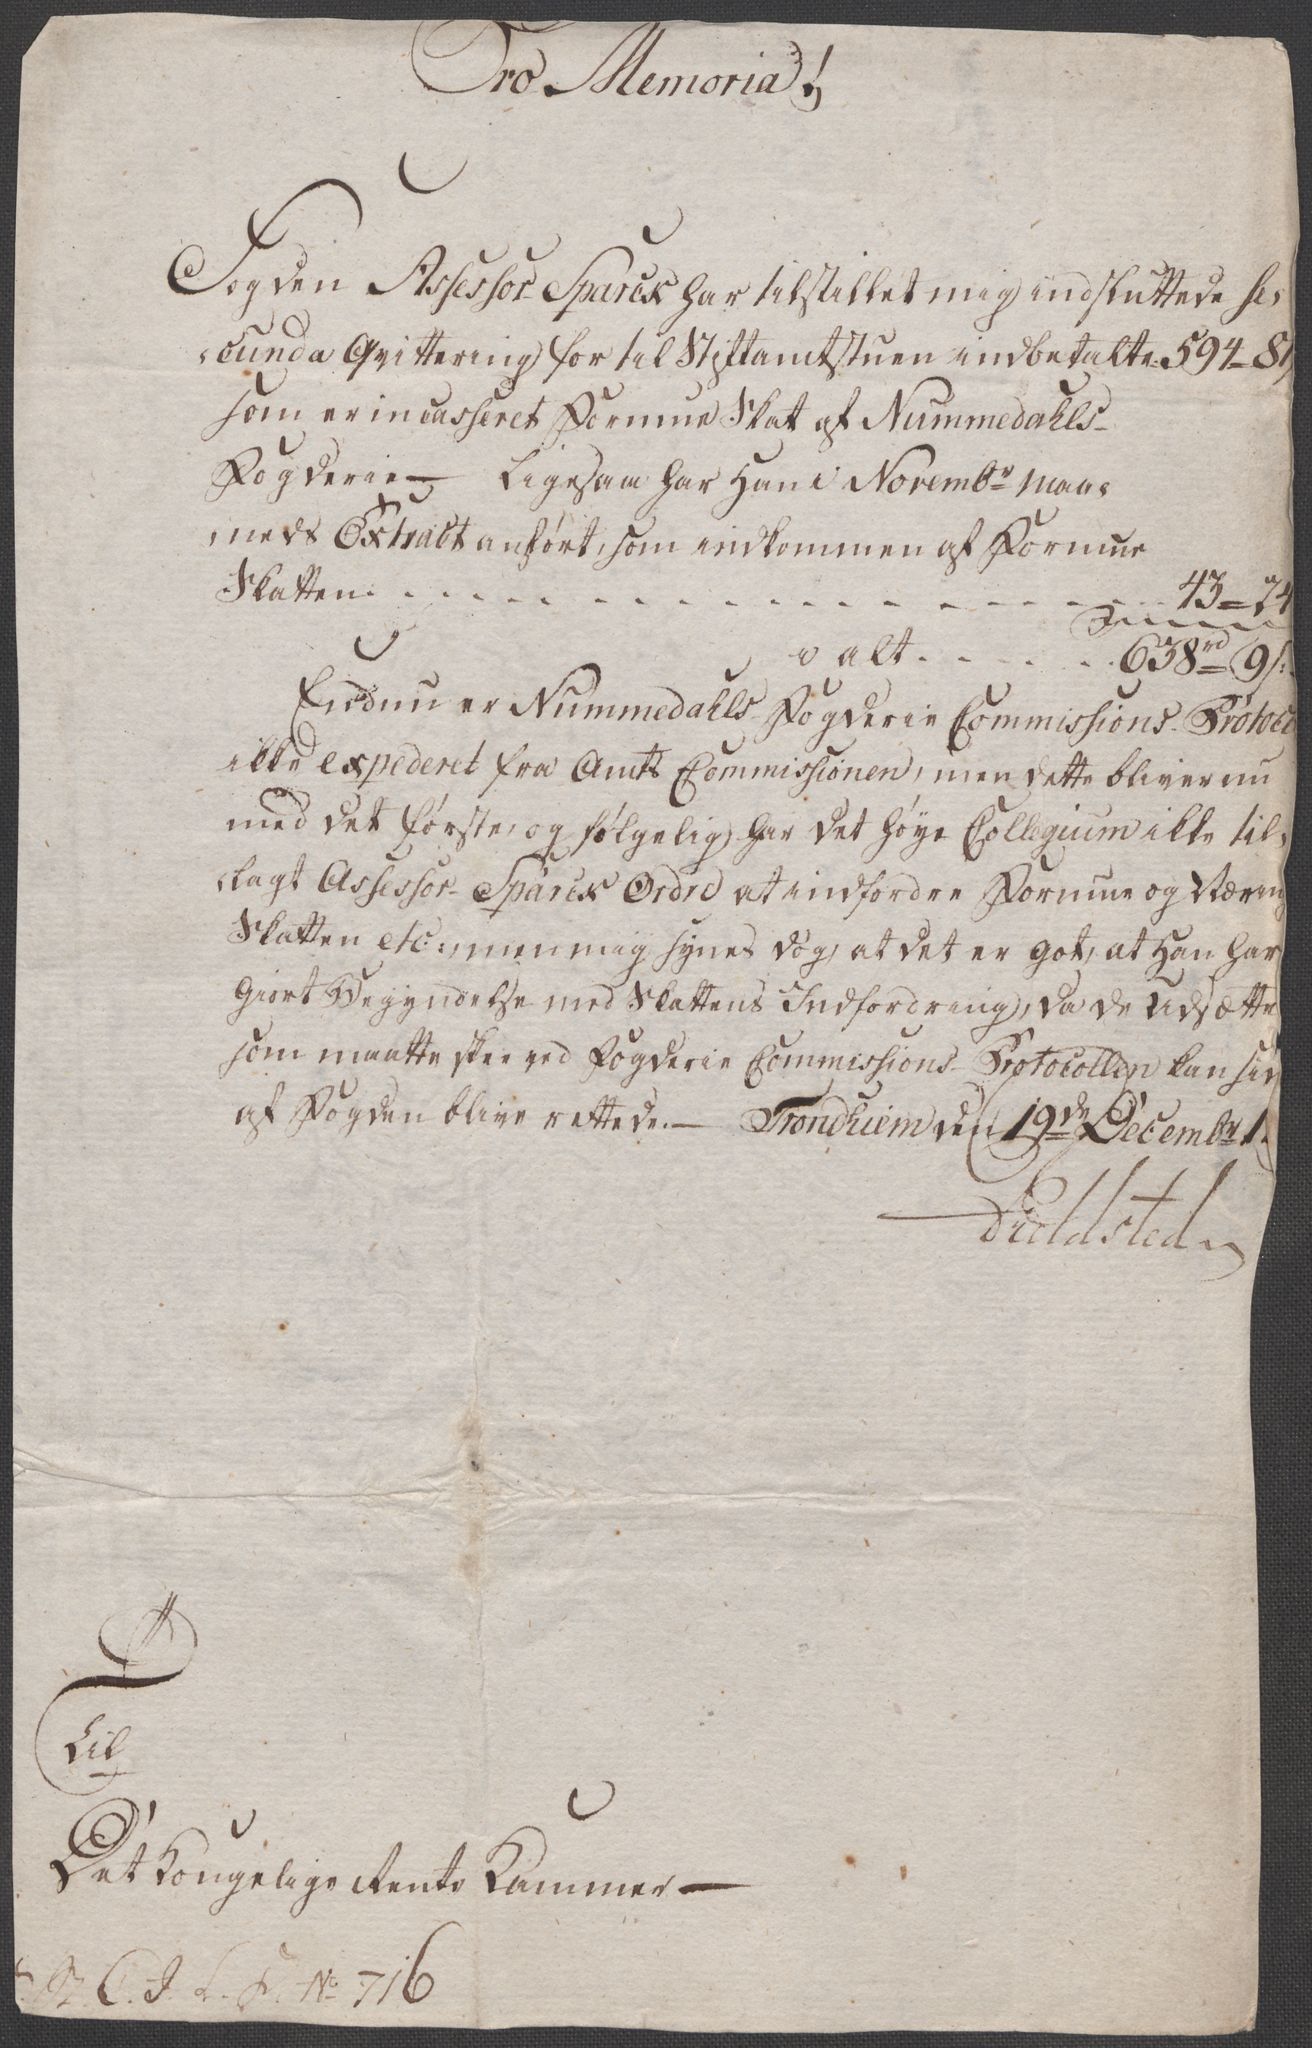 Pro Memoria!
Fogden Assessor Sparck har tilstillet mig indsluttede se,
,cunda Qvittering for til Stiftamtstuen indbetalte 594 - 81
som er incasseret Formue Skat af Nummedahls-
Fogderie - Ligesaa har Han i Novembr Maa,
,neds Extract anført, som indkommen af Formue
Skatten . . . . . . . . . . . . . . . . . . 43 = 24
i alt . . . . . . 638rd 9s:
Endnu er Nummedahls Fogderie Commissions-Protoco
ikke expederet fra Amts Commissionen, men dette bliver nu
med det første, og følgelig har det høye Collegium ikke til,
,lagt Assessor Sparck Ordre at indfordre Formue og Næring
Skatten etc:, men mig synes dog, at det er got, at Han har
giort Begyndelse med Skattens Indfordring, da de Udsætte
som maatte skee ved Fogderie Commissions-Protocollen kan sid
af Fogden blive rettede. - Trondhiem den 19de Decembr 1
Fieldsted
Til
Det Kongelige Rente Kammer -
No 716